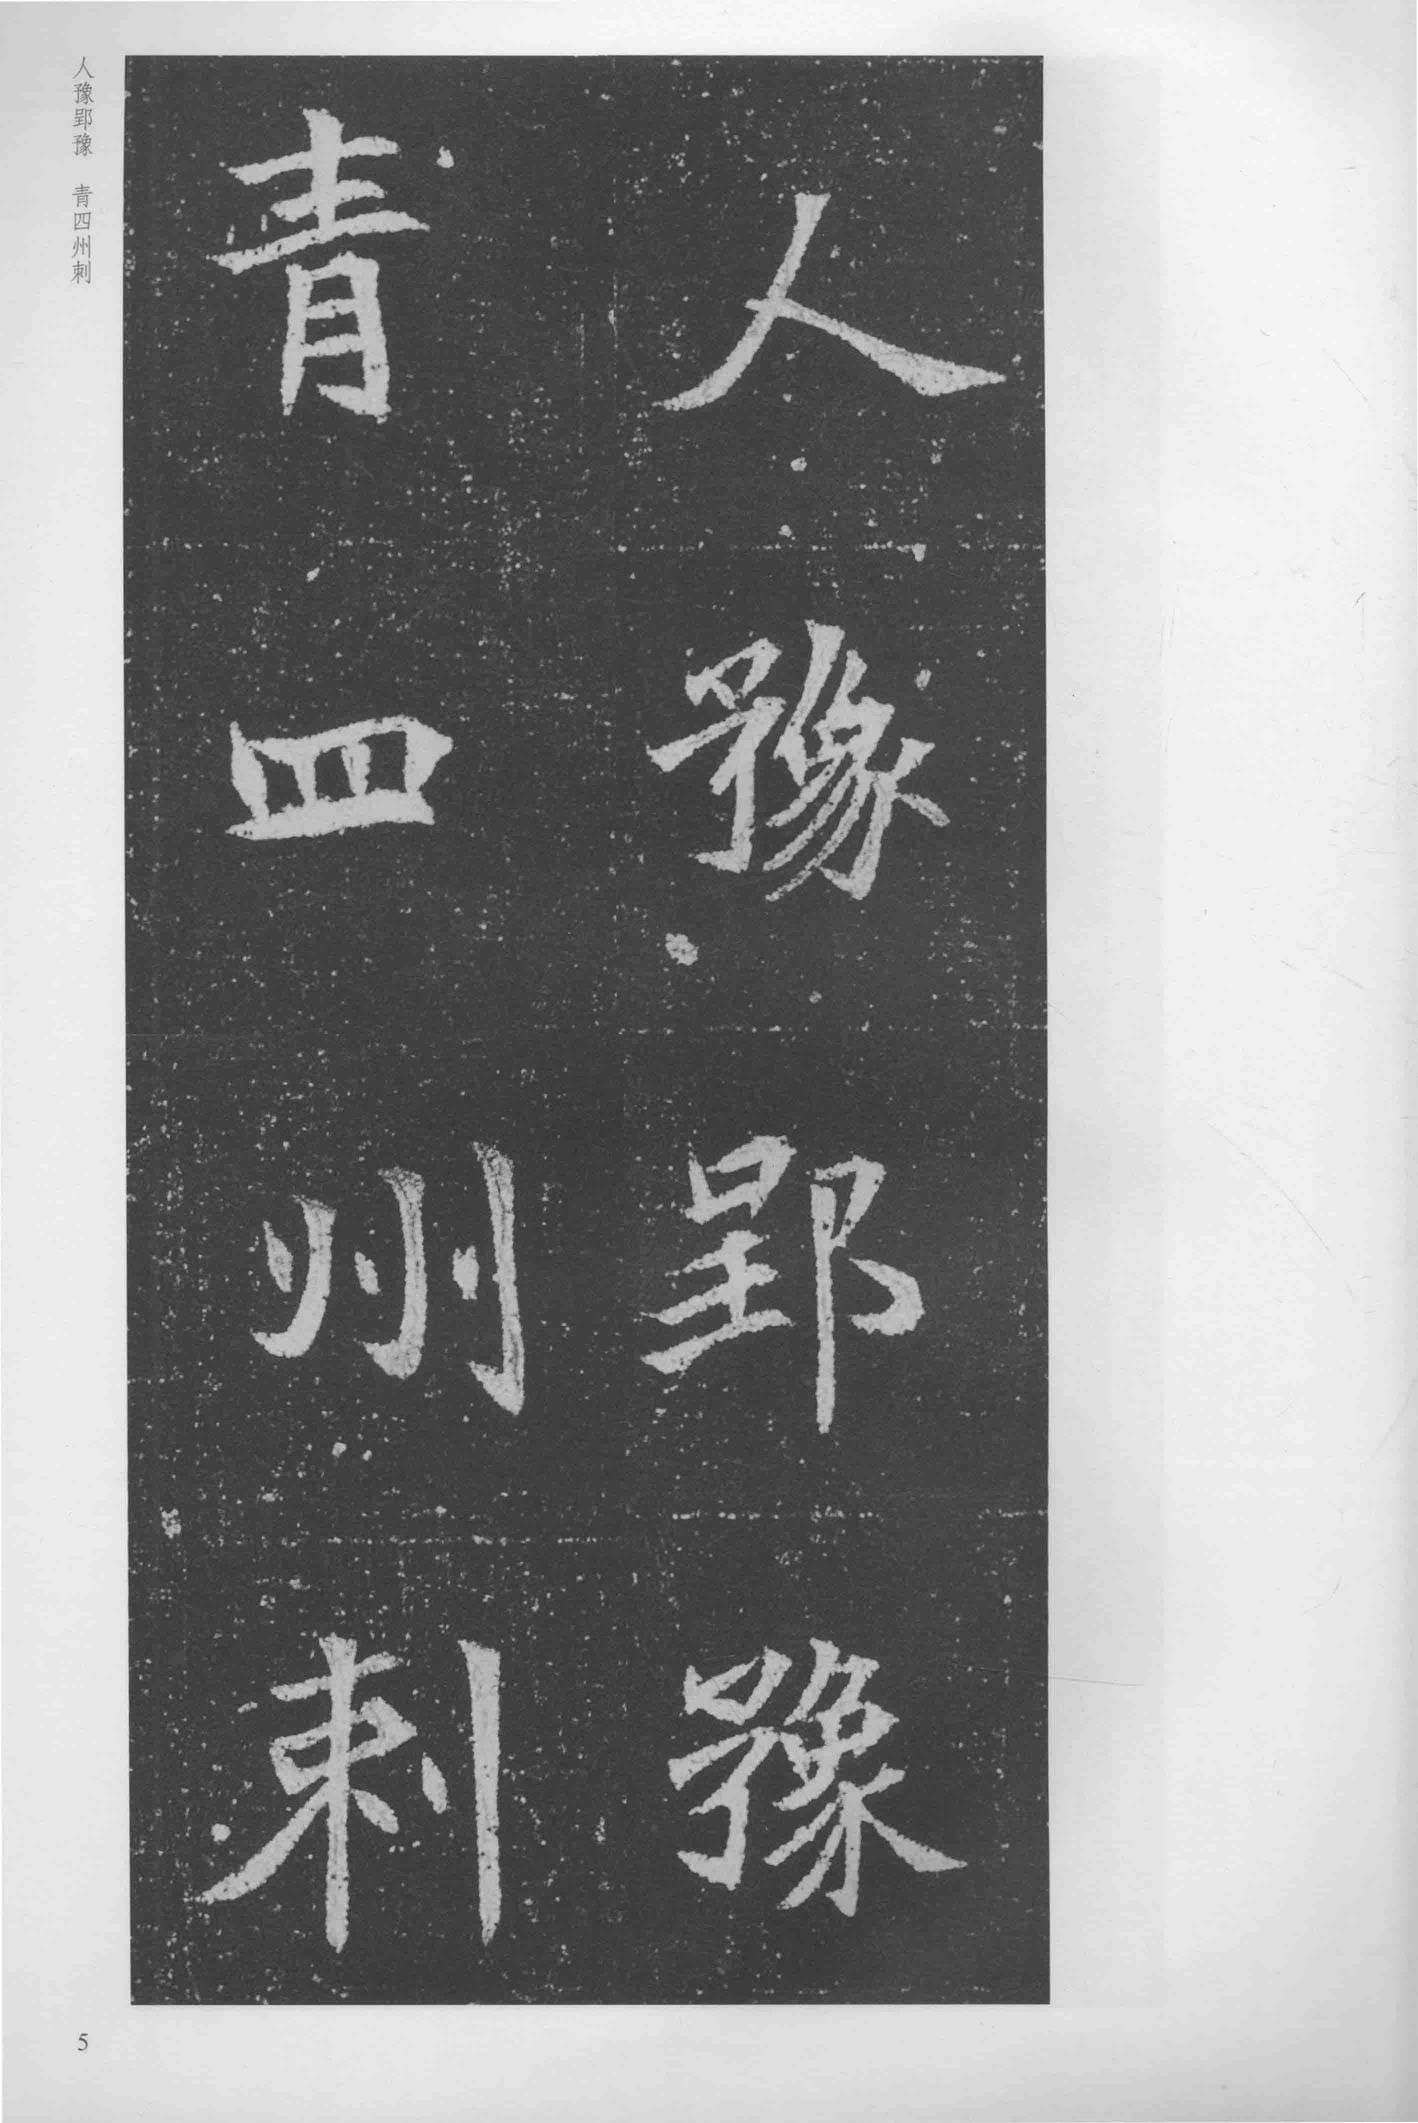 人豫郢豫
青四州刺
人豫郢豫　青四州刺
5